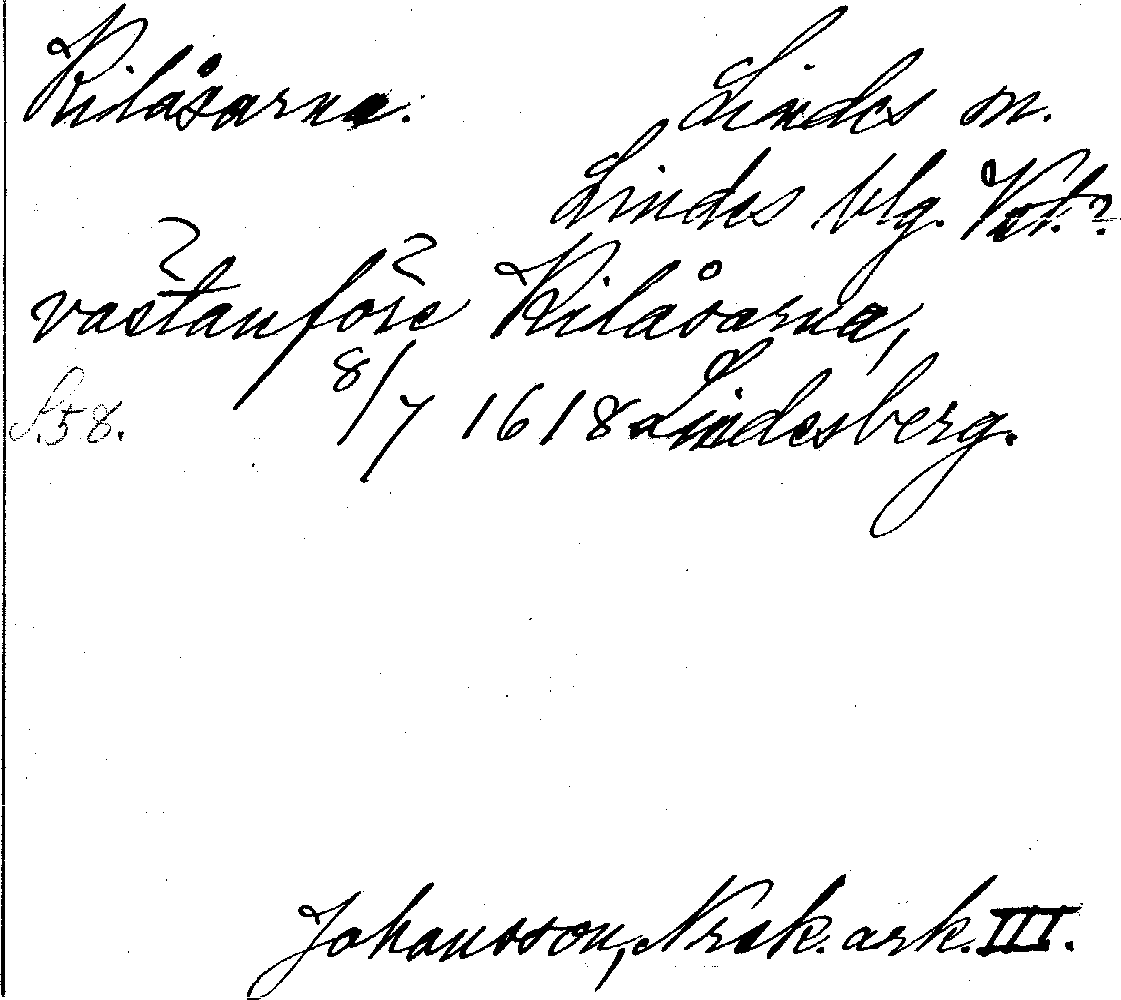 Kilåsarna. Lindes sn.
Lindes blg. Vstm.
västanföre Kilåsarna,
S. 58. 8/7 1618 Lindesberg.
Johansson, Nrsk. ark. III.